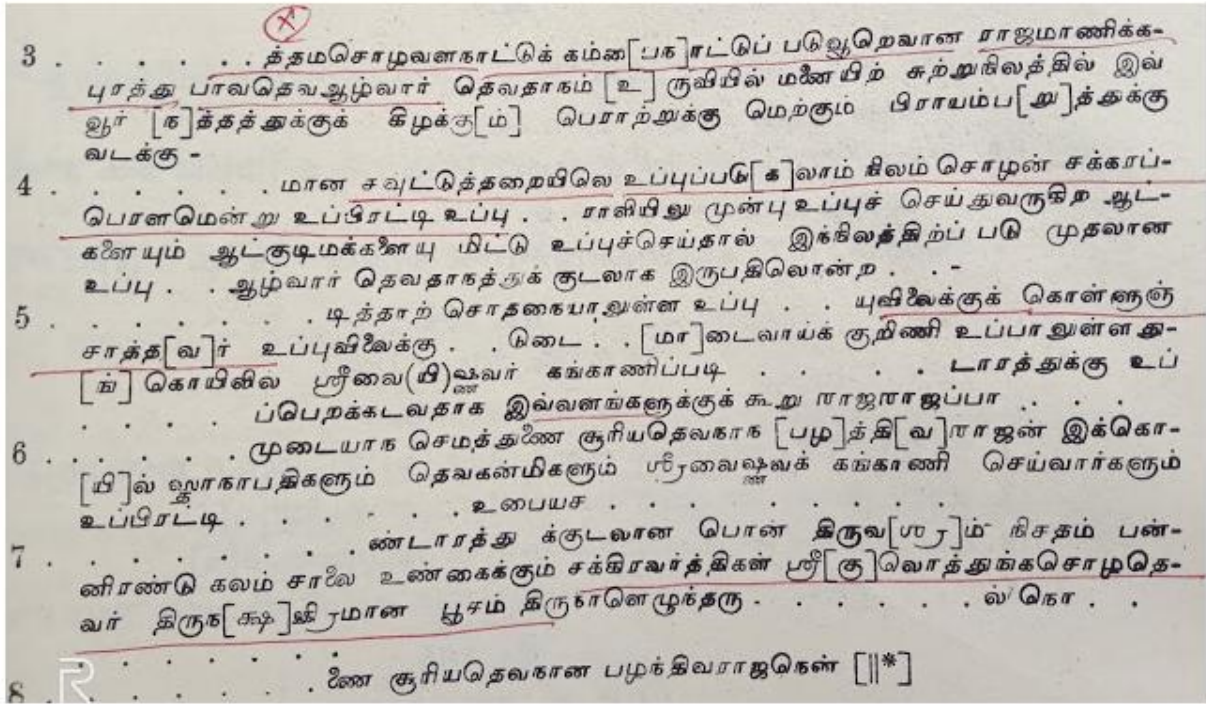 3 . . . . . . . த்தமசொழவளநாட்டுக் கம்பை[பந]ாட்டுப் படுவூரெவான ராஜமாணிக்க-
புரத்து பாவதெவஆழ்வார் தெவதாநம் [உ] ருவியில் மனையிற் சுற்றுநிலத்தில் இவ்
வூர் [ந]த்தத்துக்குக் கிழக்கு[ம்] பெராற்றுக்கு மெற்கும் பிராயம்ப[று]த்துக்கு
வடக்கு -
4 . . . . . . . . மான சவுட்டுத்தறையிலெ உப்புப்படு[க]லாம் நிலம் சொழன் சக்கரப்-
பெரளமென்று உப்பிரட்டி உப்பு . . ராளியிலு முன்பு உப்புச் செய்துவருகிற ஆட்-
களையும் ஆட்குடிமக்களையு மிட்டு உப்புச்செய்தால் இந்நிலத்திற்ப் படு முதலான
உப்பு . . ஆழ்வார் தெவதாநத்துக் குடலாக இருபதிலொன்ற . . -
5 . . . . . . . . டித்தாற் சொதநையாலுள்ள உப்பு . . யுவிலைக்குக் கொள்ளுஞ்
சாத்த[வ]ர் உப்புவிலைக்கு . . டுடை . . [மா]டைவாய்க் குறிணி உப்பாலுள்ளது-
[ங்] கொயிலில் ஸ்ரீவை(யி)ஷ்ணவர் கங்காணிப்படி . . . . . டாரத்துக்கு உப்
. . . . . ப்பெறக்கடவதாக இவ்வளங்களுக்குக் கூறு ராஜராஜப்பா . . . .
6 . . . . . . . முடையாந செமத்துணை சூரியதெவநாந [பழ]த்தி[வ]ராஜன் இக்கொ-
[யி]ல் ஸ்தாநாபதிகளும் தெவகன்மிகளும் ஸ்ரீவைஷ்ணவக் கங்காணி செய்வார்களும்
உப்பிரட்டி . . . . . . . உபையச . . . . . . . . .
7 . . . . . . . . . ண்டாரத்து க்குடலான பொன் திருவ[ஸ்ரீ]ம் நிசதம் பன்-
னிரண்டு கலம் சாலை உண்கைக்கும் சக்கிரவர்த்திகள் ஸ்ரீ[கு]லொத்துங்கசொழதெ-
வர் திருந[க்ஷ]த்திரமான பூசம் திருநாளெழுந்தரு . . . . . . . ல் நொ . .
. . . . . . .
8 . . . . . . . . ணை சூரியதெவநான பழந்திவராஜநென் [||*]